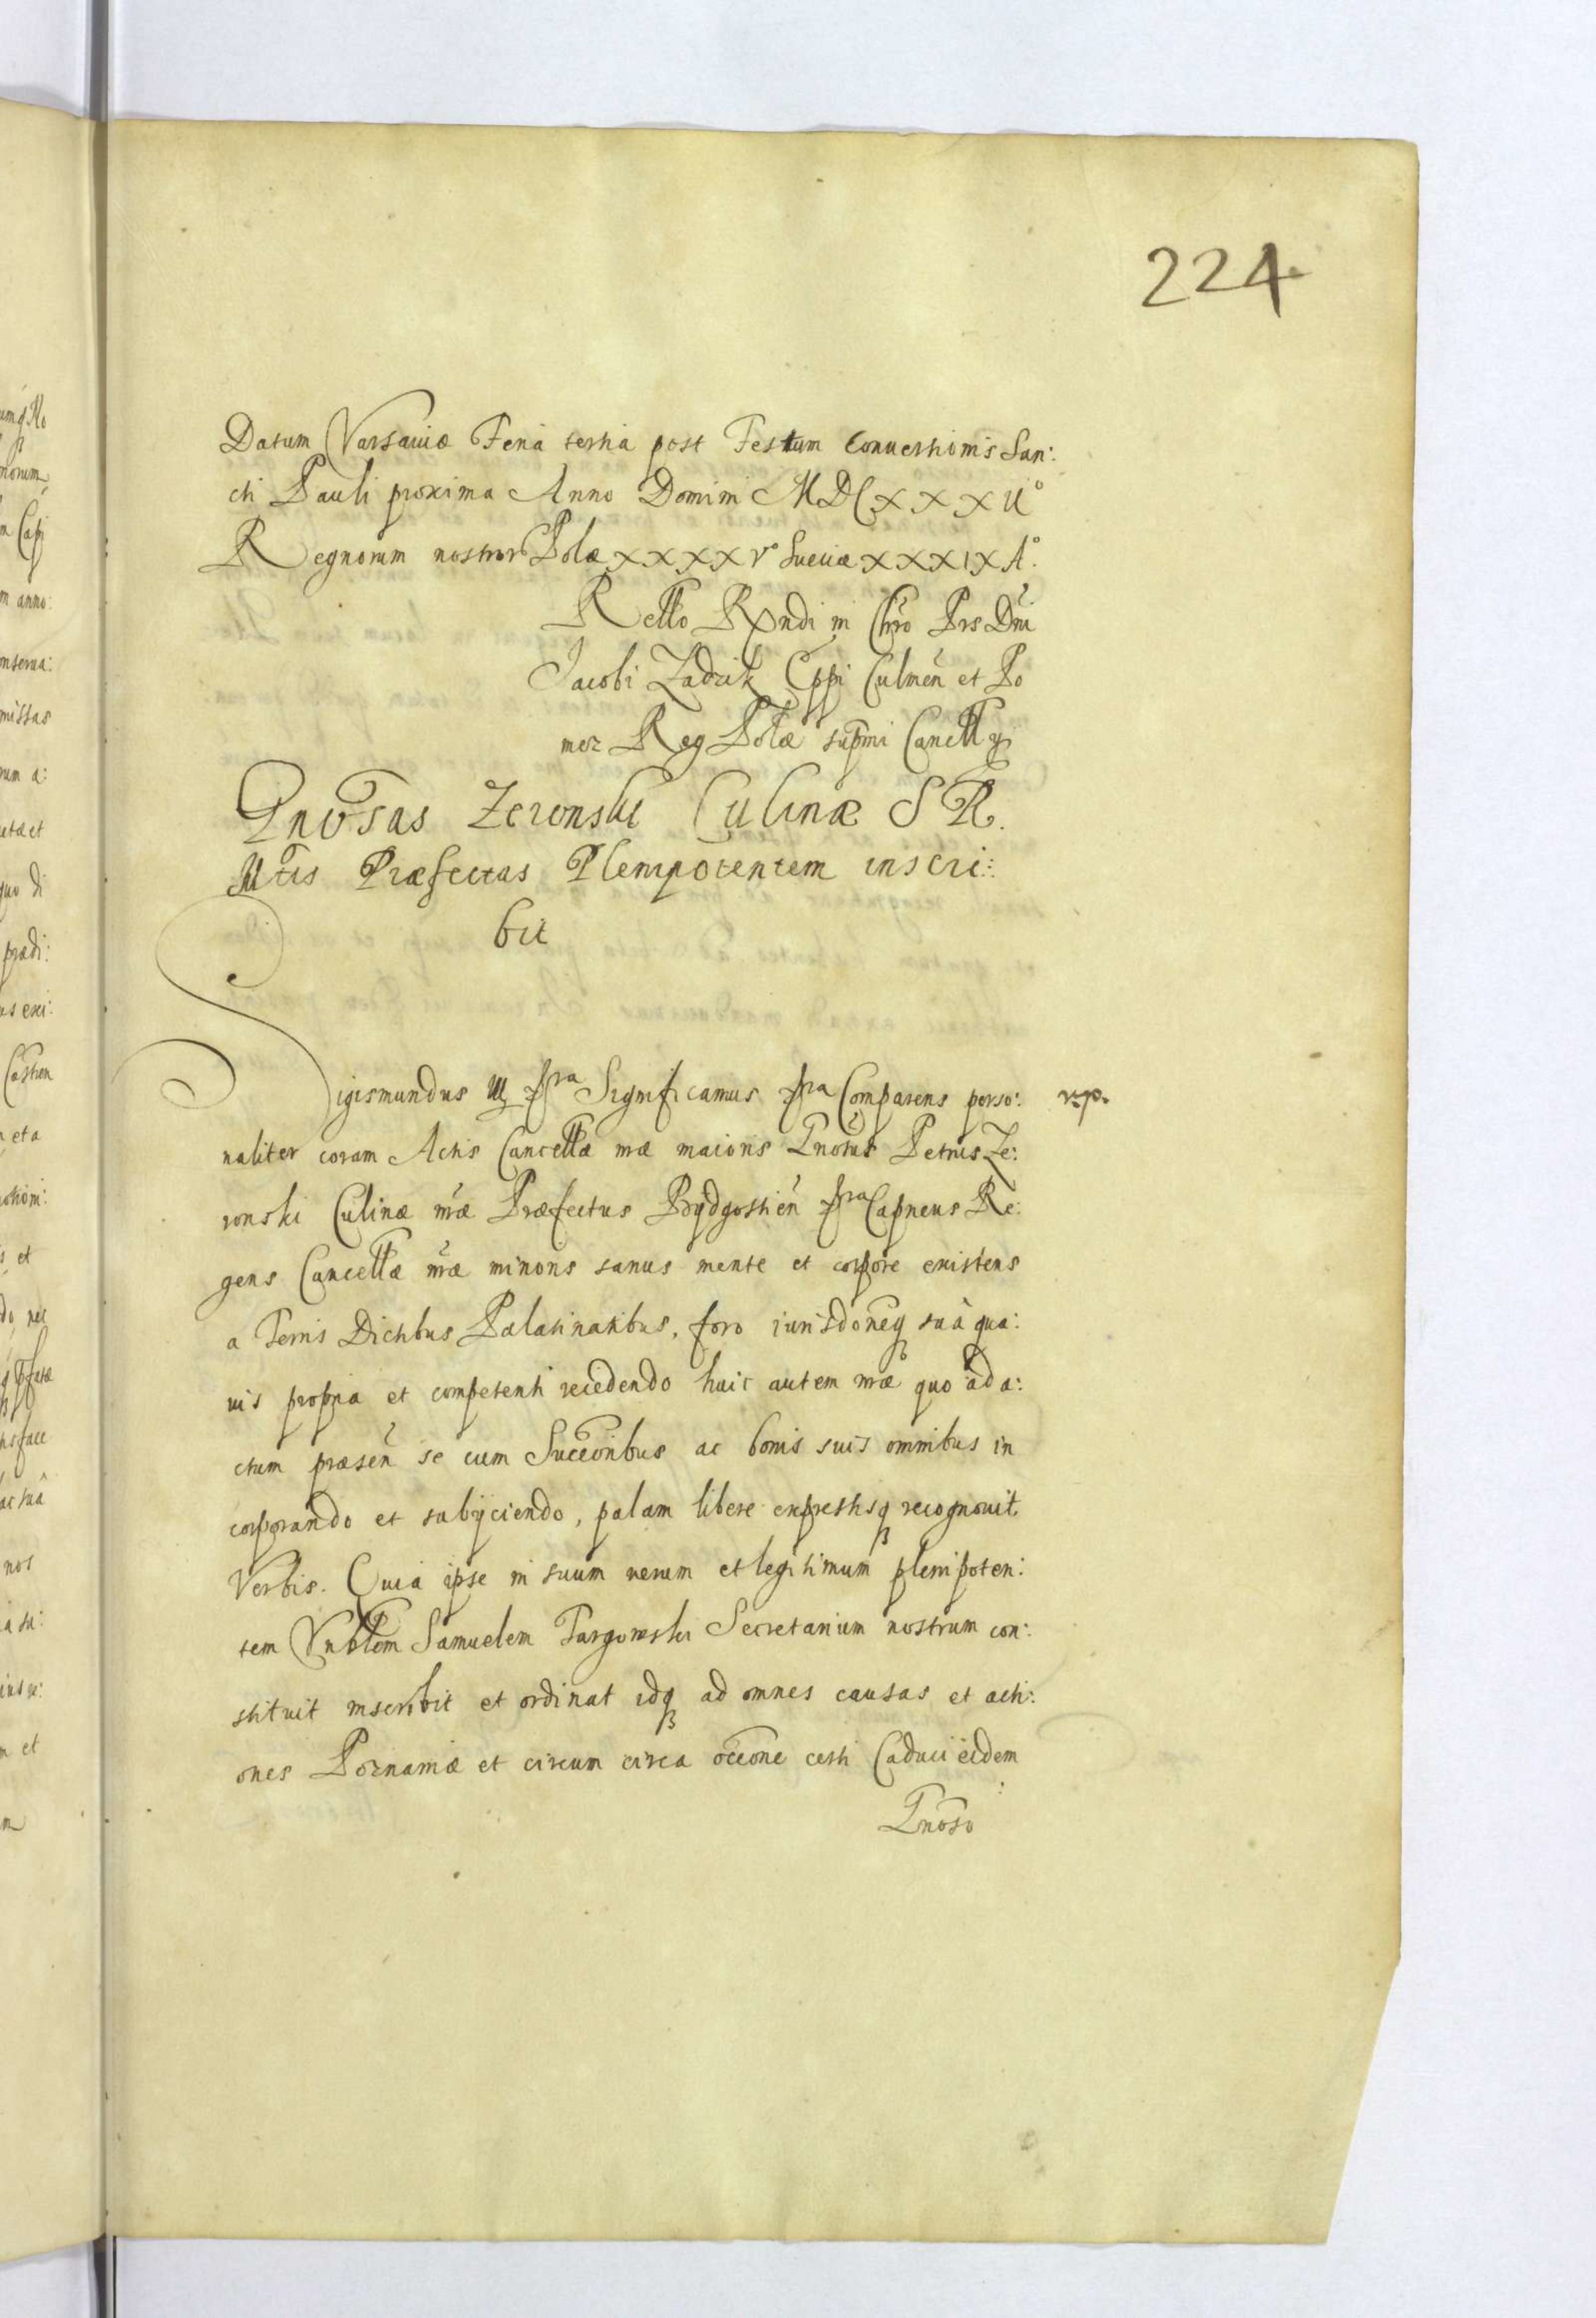 224
Datum Varsauiæ Feria tertia post Festum Conuersionis San:
cti Pauli proxima Anno Domini MDCXXXII°
Regnorum nostror Polæ XXXXV° Sueciæ XXXIX A°.
Rello Rxndi in Chro Pris Dni
Jacobi Zadzik Eppi Culmen et Po
mez Reg Polæ supmi Cancllrij
Gnosus Zeronski Culinæ S R.
Mtis Præfectus Plenipotentem inscri:
bit
Sigismundus III pra Significamus pra Comparens perso: rp.
naliter coram Actis Cancellæ nræ maioris Gnosus Petrus Ze:
ronski Culinæ nræ Præfectus Bydgostien pra Capneus Re:
gens Cancellæ nræ minoris sanus mente et corpore existens
a Terris Dictibus Palatinatibus, foro iurisdoneq suâ qua:
uis propria et competenti recedendo huic autem nræ quo ad a:
ctum præsen se cum Succoribus ac bonis suis omnibus in
corporando et subijciendo, palam libere expressisq recognouit
Verbis. Quia ipse in suum verum et legitimum plenipoten:
tem Gnblem Samuelem Targowski Secretarium nostrum con:
stituit inscribit et ordinat idq ad omnes causas et acti:
ones Poznaniæ et circum circa occone certi Caduci eidem
Gnoso